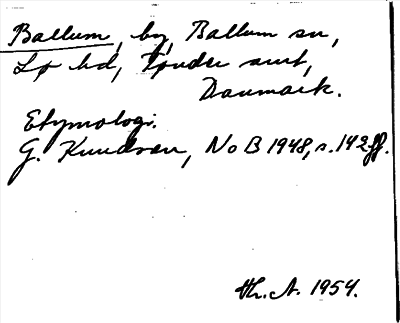 Ballum, by, Ballum sn,
Lø hd, Tønder amt,
Danmark.
Etymologi.
G. Knudsen, NoB 1948, s. 142 ff.
Hr. A. 1954.